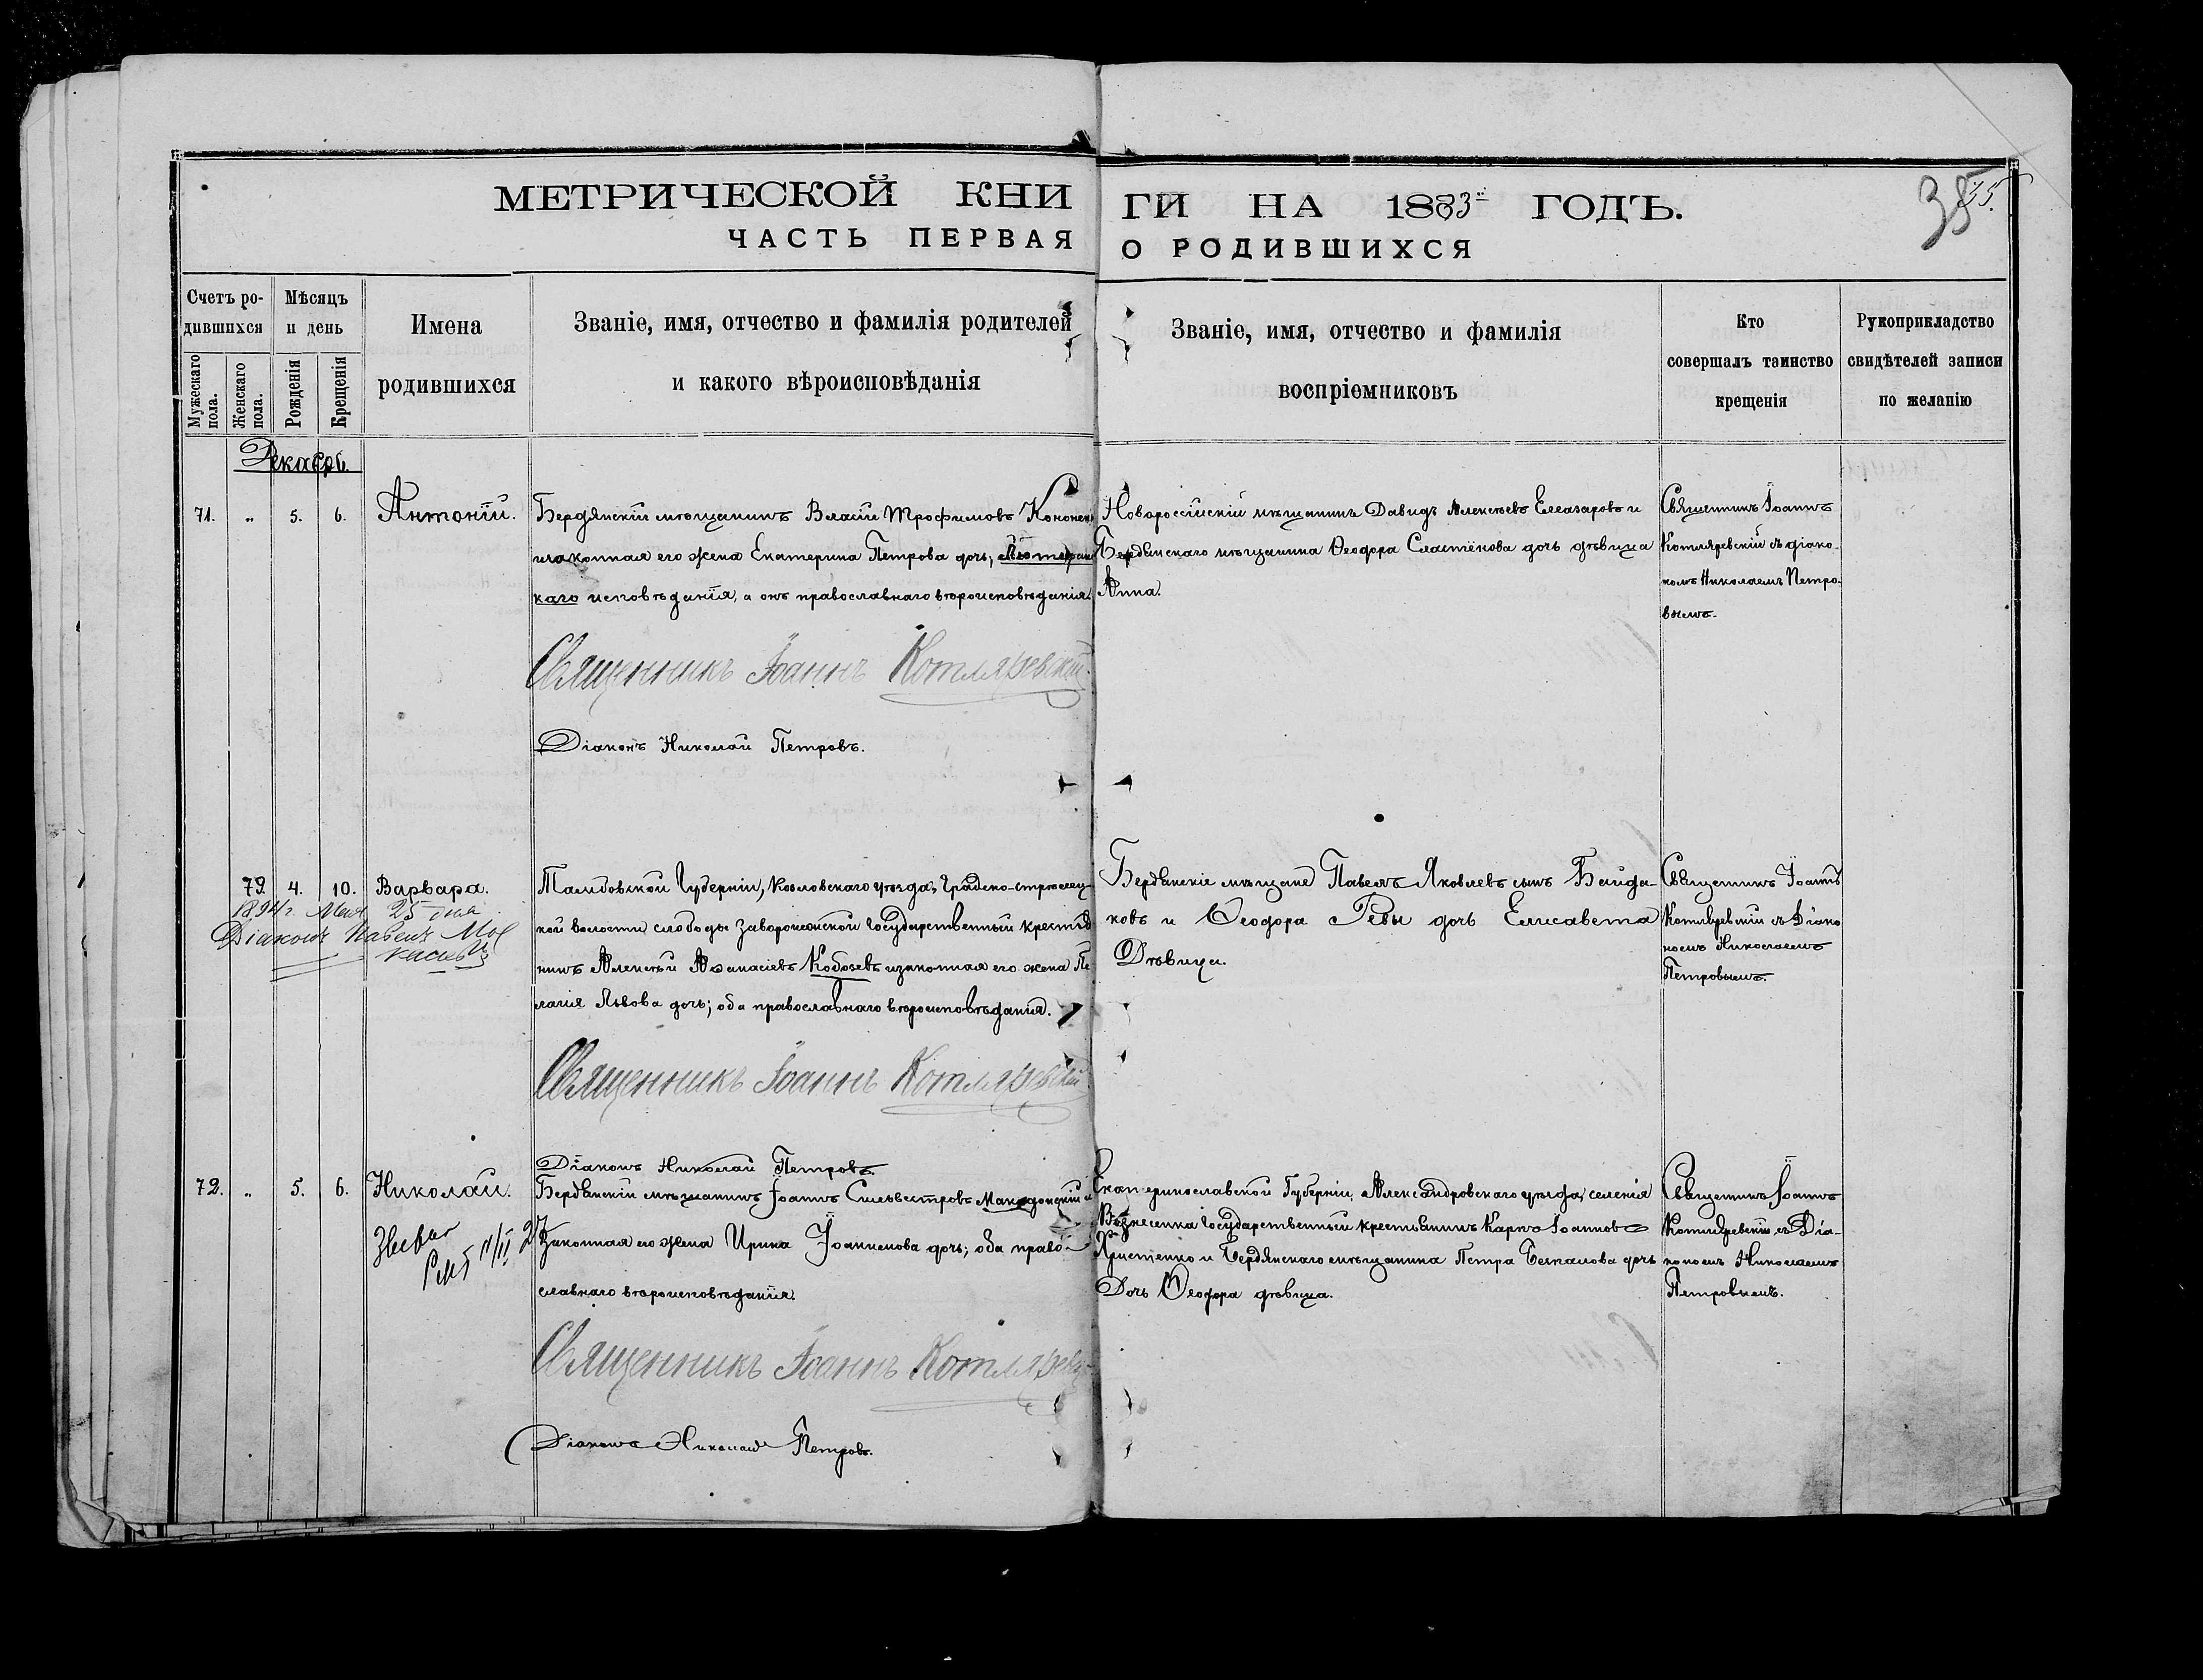 МЕТРИЧЕСКОЙ КНИ
ГИ НА 1883й ГОДЪ.
35
ЧАСТЬ ПЕРВАЯ
О РОДИВШИХСЯ
Счетъ ро-
дившихся
Мужескаго пола.
Женскаго пола.
Мѣсяцъ
и день
Рожденія
Крещенія
Имена
родившихся
Званіе, имя, отчество и фамилія родителей
и какого вѣроисповѣданія
Званіе, имя, отчество и фамилія
воспріемниковъ
Кто
совершалъ таинство
крещенія
Рукоприкладство
свидѣтелей записи
по желанію
Декабрь.
71. „ 5. 6. Антоній.
Бердянскій мѣщанинъ Власій Трофимовъ Кононен
изаконная его жена Екатерина Петрова дочь;
каго исповѣданія, а онъ православнаго вѣроисповѣданія.
Священникъ Іоаннъ Котляревскій.
Діаконъ Николай Петровъ.
Новороссійскій мѣщанинъ Давидъ Алексѣевъ Елеазаровъ и
Бердянскаго мѣщанина Ѳеодора Сластёнова дочь дѣвица
Анна.
Священникъ Іоаннъ
Котляревскій съ діако-
номъ Николаемъ Петро-
вымъ.
79. 4. 10. Варвара.
1894 г. Мая 25 дня
Діаконъ Павелъ
Тамбовской Губерніи, Козловскаго уѣзда, Градско-стрѣлец-
кой волости слободы Заворонежской Государственный крестья
нинъ Алексѣй Аѳанасіевъ Кобозевъ изаконная его жена Пе
лагія Львова дочь; оба православнаго вѣроисповѣданія.
Священникъ Іоаннъ Котляревскій
Діаконъ Николай Петровъ.
Бердянскіе мѣщане Павелъ Яковлевъ сынъ Байда-
ковъ и Ѳеодора Ревы дочь Елисавета
Дѣвица.
Священникъ Іоаннъ
Котляревскій съ Діако
номъ Николаемъ
Петровымъ.
72. „ 5. 6. Николай.
Бердянскій мѣщанинъ Іоаннъ Сильвестровъ Македонскій и
Законная его жена Ирина Іоакимова дочь; оба право-
славнаго вѣроисповѣданія.
Священникъ Іоаннъ Котлярев
Діаконъ Николай Петровъ.
Екатеринославской Губерніи, Александровскаго уѣзда, селенія
Вознесенка Государственный крестьянинъ Карпъ Іоанновъ
Христенко и Бердянскаго мѣщанина Петра дочь
Дочь Ѳеодора дѣвица.
Священникъ Іоаннъ
Котляревскій съ Діа-
кономъ Николаемъ
Петровымъ.